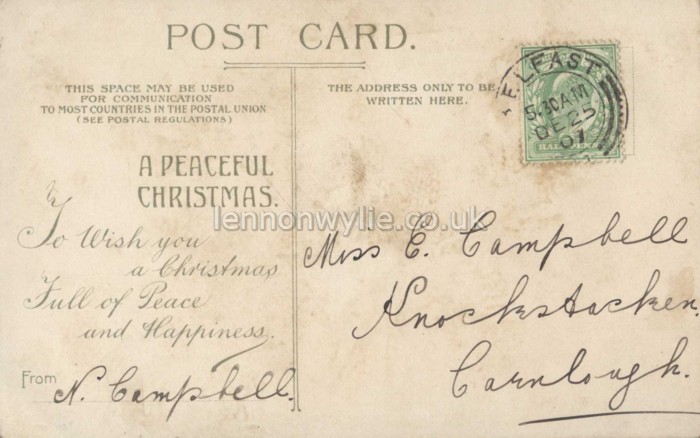 POST CARD.
THIS SPACE MAY BE USED
FOR COMMUNICATION
TO MOST COUNTRIES IN THE POSTAL UNION
(SEE POSTAL REGULATIONS)
THE ADDRESS ONLY TO BE
WRITTEN HERE.
ELFAST
5.30AM
DE 25
07
HALFPENNY
A PEACEFUL
CHRISTMAS.
To Wish you
a Christmas
Full of Peace
and Happiness.
From N. Campbell.
Miss E. Campbell
Knockstacken
Carnlough.
lennonwylie.co.uk